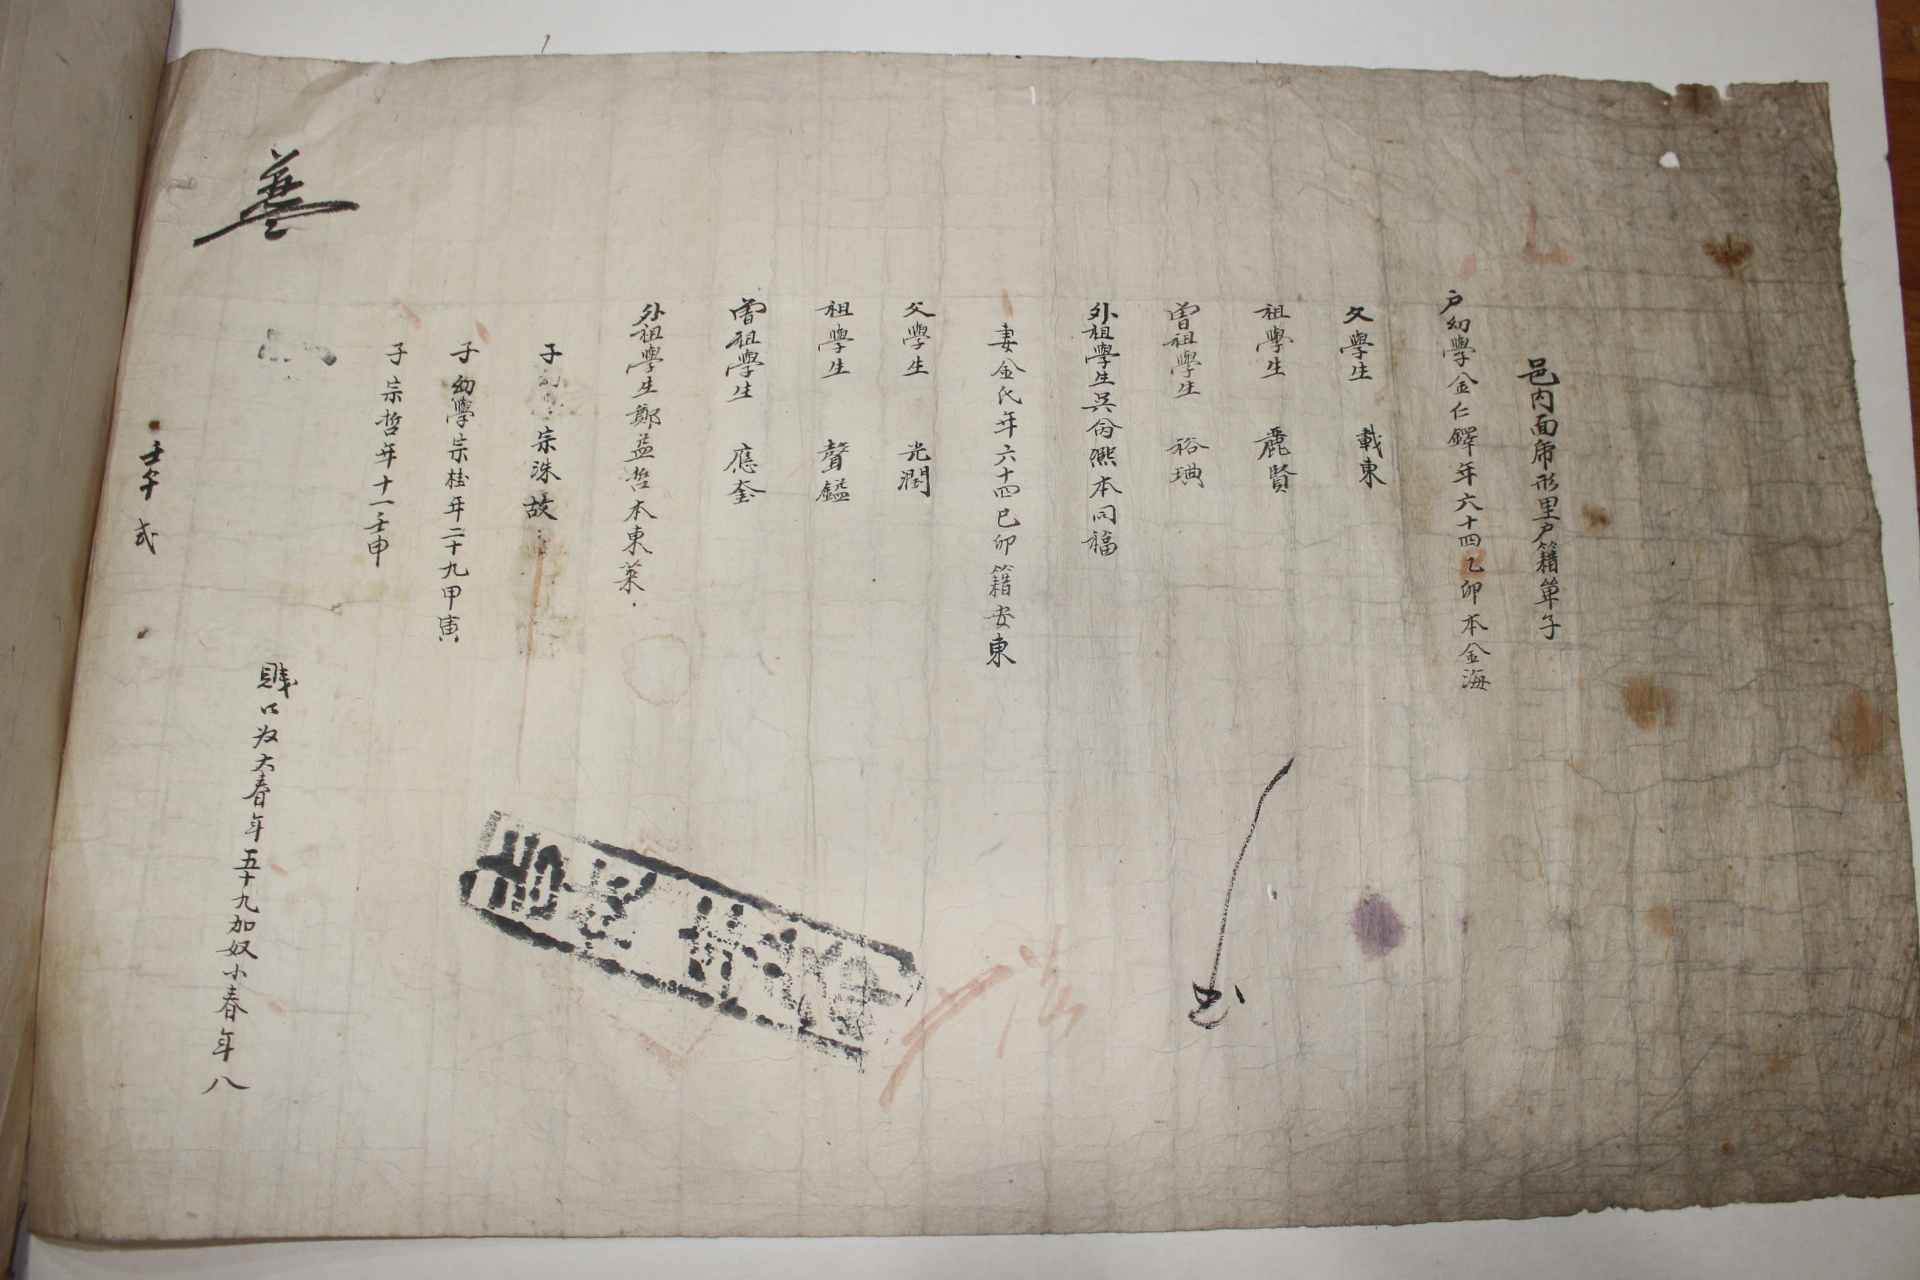 邑内面席形里戶籍單子
戶幼學金仁鐸年六十四乙卯本金海
父學生 載東
祖學生 麗賢
曾祖學生 裕琠
外祖學生吳份熙本同福
妻金氏年六十四己卯籍安東
父學生 光潤
祖學生 聲鎰
曾祖學生 應奎
外祖學生鄭益哲本東萊
子幼學宗洙故
子幼學宗桂年二十九甲寅
子宗哲年十一壬申
賤口秩大春年五十九加奴小春年八
壬午式